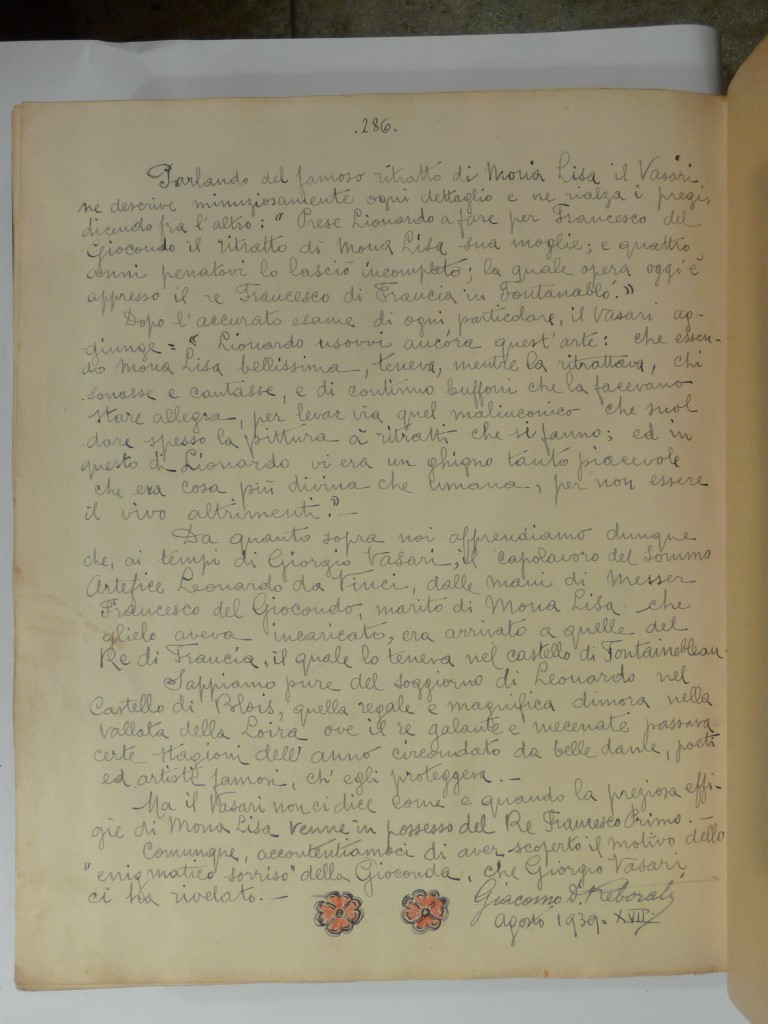 .286.
Parlando del famoso ritratto di Mona Lisa il Vasari,
ne descrive minuziosamente ogni dettaglio e ne rialza i pregi,
dicendo fra l'altro: " Prese Lionardo a fare per Francesco del
Giocondo il ritratto di Mona Lisa sua moglie; e quattro
anni penatovi lo lasciò incompleto; la quale opera oggi è
appresso il re Francesco di Francia in Fontanabló."
Dopo l'accurato esame di ogni particolare, il Vasari ag-
giunge = " Lionardo usovvi ancóra quest'arte: che essen-
do Mona Lisa bellissima, teneva, mentre la ritrattava, chi
sonasse e cantasse, e di continuo buffoni che la facevano
stare allegra, per levar via quel malinconico che suol
dare spesso la pittura à ritratti che si fanno; ed in
questo di Lionardo vi era un ghigno tanto piacevole
che era cosa più divina che umana, per non essere
il vivo altrimenti." —
Da quanto sopra noi apprendiamo dunque
che, ai tempi di Giorgio Vasari, il capolavoro del sommo
Artefice Leonardo da Vinci, dalle mani di Messer
Francesco del Giocondo, marito di Mona Lisa che
glielo aveva incaricato, era arrivato a quelle del
Re di Francia, il quale lo teneva nel castello di Fontainebleau.
Sappiamo pure del soggiorno di Leonardo nel
Castello di Blois, quella regale e magnifica dimora nella
vallata della Loira ove il re galante e mecenate passava
certe stagioni dell'anno circondato da belle dame, poeti
ed artisti famosi, ch'egli proteggeva. —
Ma il Vasari non ci dice come e quando la preziosa effi-
gie di Mona Lisa venne in possesso del Re Francesco Primo. —
Comunque, accontentiamoci di aver scoperto il motivo dello
"enigmatico sorriso" della Gioconda, che Giorgio Vasari
ci ha rivelato. —
Giacomo
Agosto 1939. XVII.